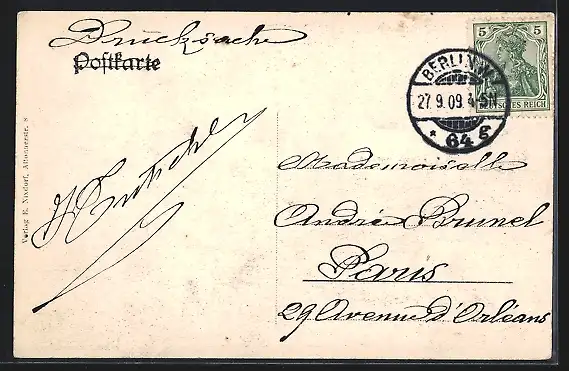 Drucksache
Postkarte
5 5
DEUTSCHES REICH
BERLIN
27.9.09. 4-5N
* 64 g
Mademoiselle
André Brunel
Paris
29 Avenue d'Orléans
Verlag E. Nixdorf, Altonaerstr. 8